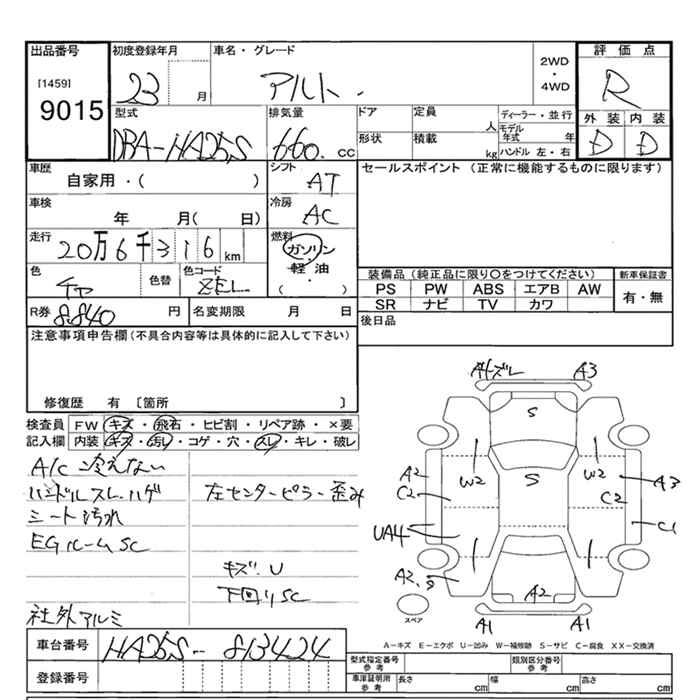 出品番号
[1459]
9015
初度登録年月
23
月
車名・グレード
アルト
2WD
・
4WD
評価点
R
外装
内装
D
D
型式
DBA-HA25S
排気量
660
cc
ドア
定員
人
形状
積載
kg
ディーラー・並行
モデル
年式
年
ハンドル 左・右
車歴
自家用・( )
シフト
AT
セールスポイント (正常に機能するものに限ります)
車検
年 月( 日)
冷房
AC
走行
20万6千316km
燃料
ガソリン
軽油
・
( )
色
チャ
色替
色コード
ZEL
装備品(純正品に限り○をつけてください)
新車保証書
PS PW ABS エアB AW
有・無
SR ナビ TV カワ
R券
8.840
円
名変期限 月 日
後日品
注意事項申告欄(不具合内容等は具体的に記入して下さい)
修復歴 有 〔箇所 〕
検査員
記入欄
FW キズ・飛石・ヒビ割・リペア跡・×要
内装 キズ・汚レ・コゲ・穴・スレ・キレ・破レ
A/C 冷えない
ハンドルスレ.ハゲ
左センターピラー歪み
シート汚れ
EGルームSC
キズ.U
下回りSC
社外アルミ
A1ズレ
A3
S
W2
S
W2
A2
C2
C2
A3
UA4
C1
A2
A2
A1
A1
スペア
A−キズ E−エクボ U−凹み W−補修跡 S−サビ C−腐食 XX−交換済
車台番号
HA25S-813424
登録番号
型式指定番号
参考
類別区分番号
参考
車庫証明用
参考
長さ
cm
幅
cm
高さ
cm